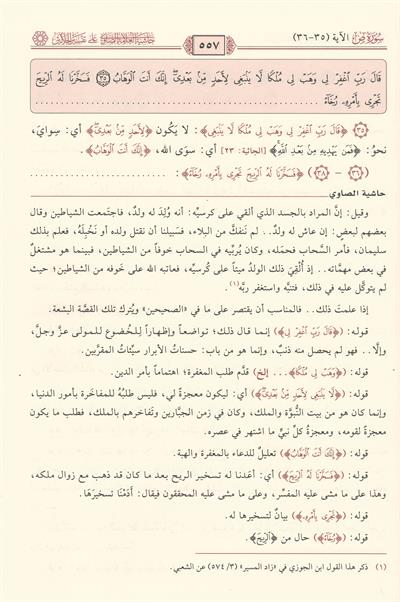 سورة ص الآية (٣٥-٣٦)
٥٥٧
حاشية العلامة الصاوي على تفسير الجلالين
قَالَ رَبِّ اغْفِرْ لِي وَهَبْ لِي مُلْكًا لَّا يَنْبَغِي لِأَحَدٍ مِّنْ بَعْدِي إِنَّكَ أَنتَ الْوَهَّابُ ٣٥ فَسَخَّرْنَا لَهُ الرِّيحَ
تَجْرِي بِأَمْرِهِ رُخَاءً
٣٥ ﴿قَالَ رَبِّ اغْفِرْ لِي وَهَبْ لِي مُلْكًا لَّا يَنْبَغِي﴾: لا يكون ﴿لِأَحَدٍ مِّنْ بَعْدِي﴾ أي: سِوايَ،
نحو: ﴿فَمَن يَهْدِيهِ مِن بَعْدِ اللَّهِ﴾ [الجاثية: ٢٣] أي: سوَى الله، ﴿إِنَّكَ أَنتَ الْوَهَّابُ﴾.
(٣٦ - ٣٨) ﴿فَسَخَّرْنَا لَهُ الرِّيحَ تَجْرِي بِأَمْرِهِ رُخَاءً﴾:
حاشية الصاوي
وقيل: إنَّ المراد بالجسد الذي ألقي على كرسيِّه: أنه وُلِدَ له ولدٌ، فاجتمعت الشياطين وقال
بعضهم لبعض: إن عاش له ولدٌ.. لم نَنفكَّ من البلاء، فسَبيلنا أن نقتل ولده أو نَخْبِلَهُ، فعلم بذلك
سليمان، فأمر السَّحاب فحمَله، وكان يُربِّيه في السحاب خوفاً من الشياطين، فبينما هو مشتغلٌ
في بعض مهمَّاته.. إذ أُلْقِيَ ذلك الولدُ ميتاً على كُرسيِّه، فعاتبه الله على خَوفه من الشياطين؛ حيث
لم يتوكَّل عليه في ذلك، فتنبَّه واستغفر ربَّه(١).
إذا علمتَ ذلك.. فالمناسب أن يقتصر على ما في «الصحيحين» ويُترك تلك القصَّة البشعة.
قوله: (﴿قَالَ رَبِّ اغْفِرْ لِي﴾) إنما قال ذلك؛ تواضعاً وإظهاراً لِلخُضوع للمولى عزَّ وجلَّ،
وإلَّا.. فهو لم يحصل منه ذنبٌ، وإنما هو من باب: حسناتُ الأبرار سيِّئاتُ المقرَّبين.
قوله: (﴿وَهَبْ لِي مُلْكًا﴾... إلخ) قدَّم طلب المغفرة؛ اهتماماً بأمر الدين.
قوله: (﴿لَّا يَنْبَغِي لِأَحَدٍ مِّنْ بَعْدِي﴾) أي: ليكون معجزةً لي، فليس طلبُهُ للمفاخَرة بأمور الدنيا،
وإنما كان هو من بيت النُّبوَّة والملك، وكان في زمن الجبَّارين وتَفاخُرِهم بالملك، فطلب ما يكون
معجزةً لقومه، ومعجزةُ كلِّ نبيٍّ ما اشتهر في عصره.
قوله: (﴿إِنَّكَ أَنتَ الْوَهَّابُ﴾) تعليلٌ للدعاء بالمغفرة والهبة.
قوله: (﴿فَسَخَّرْنَا لَهُ الرِّيحَ﴾) أي: أعَدنا له تسخير الريح بعد ما كان قد ذهب مع زوال ملكه،
وهذا على ما مشى عليه المفسِّر، وعلى ما مشى عليه المحققون فيقال: أَدَمْنَا تسخيرَها.
قوله: (﴿تَجْرِي بِأَمْرِهِ﴾) بيانٌ لتسخيرها له.
قوله: (﴿رُخَاءً﴾) حال من ﴿الرِّيحَ﴾.
(١) ذكر هذا القول ابن الجوزي في «زاد المسير» (٣/ ٥٧٤) عن الشعبي.